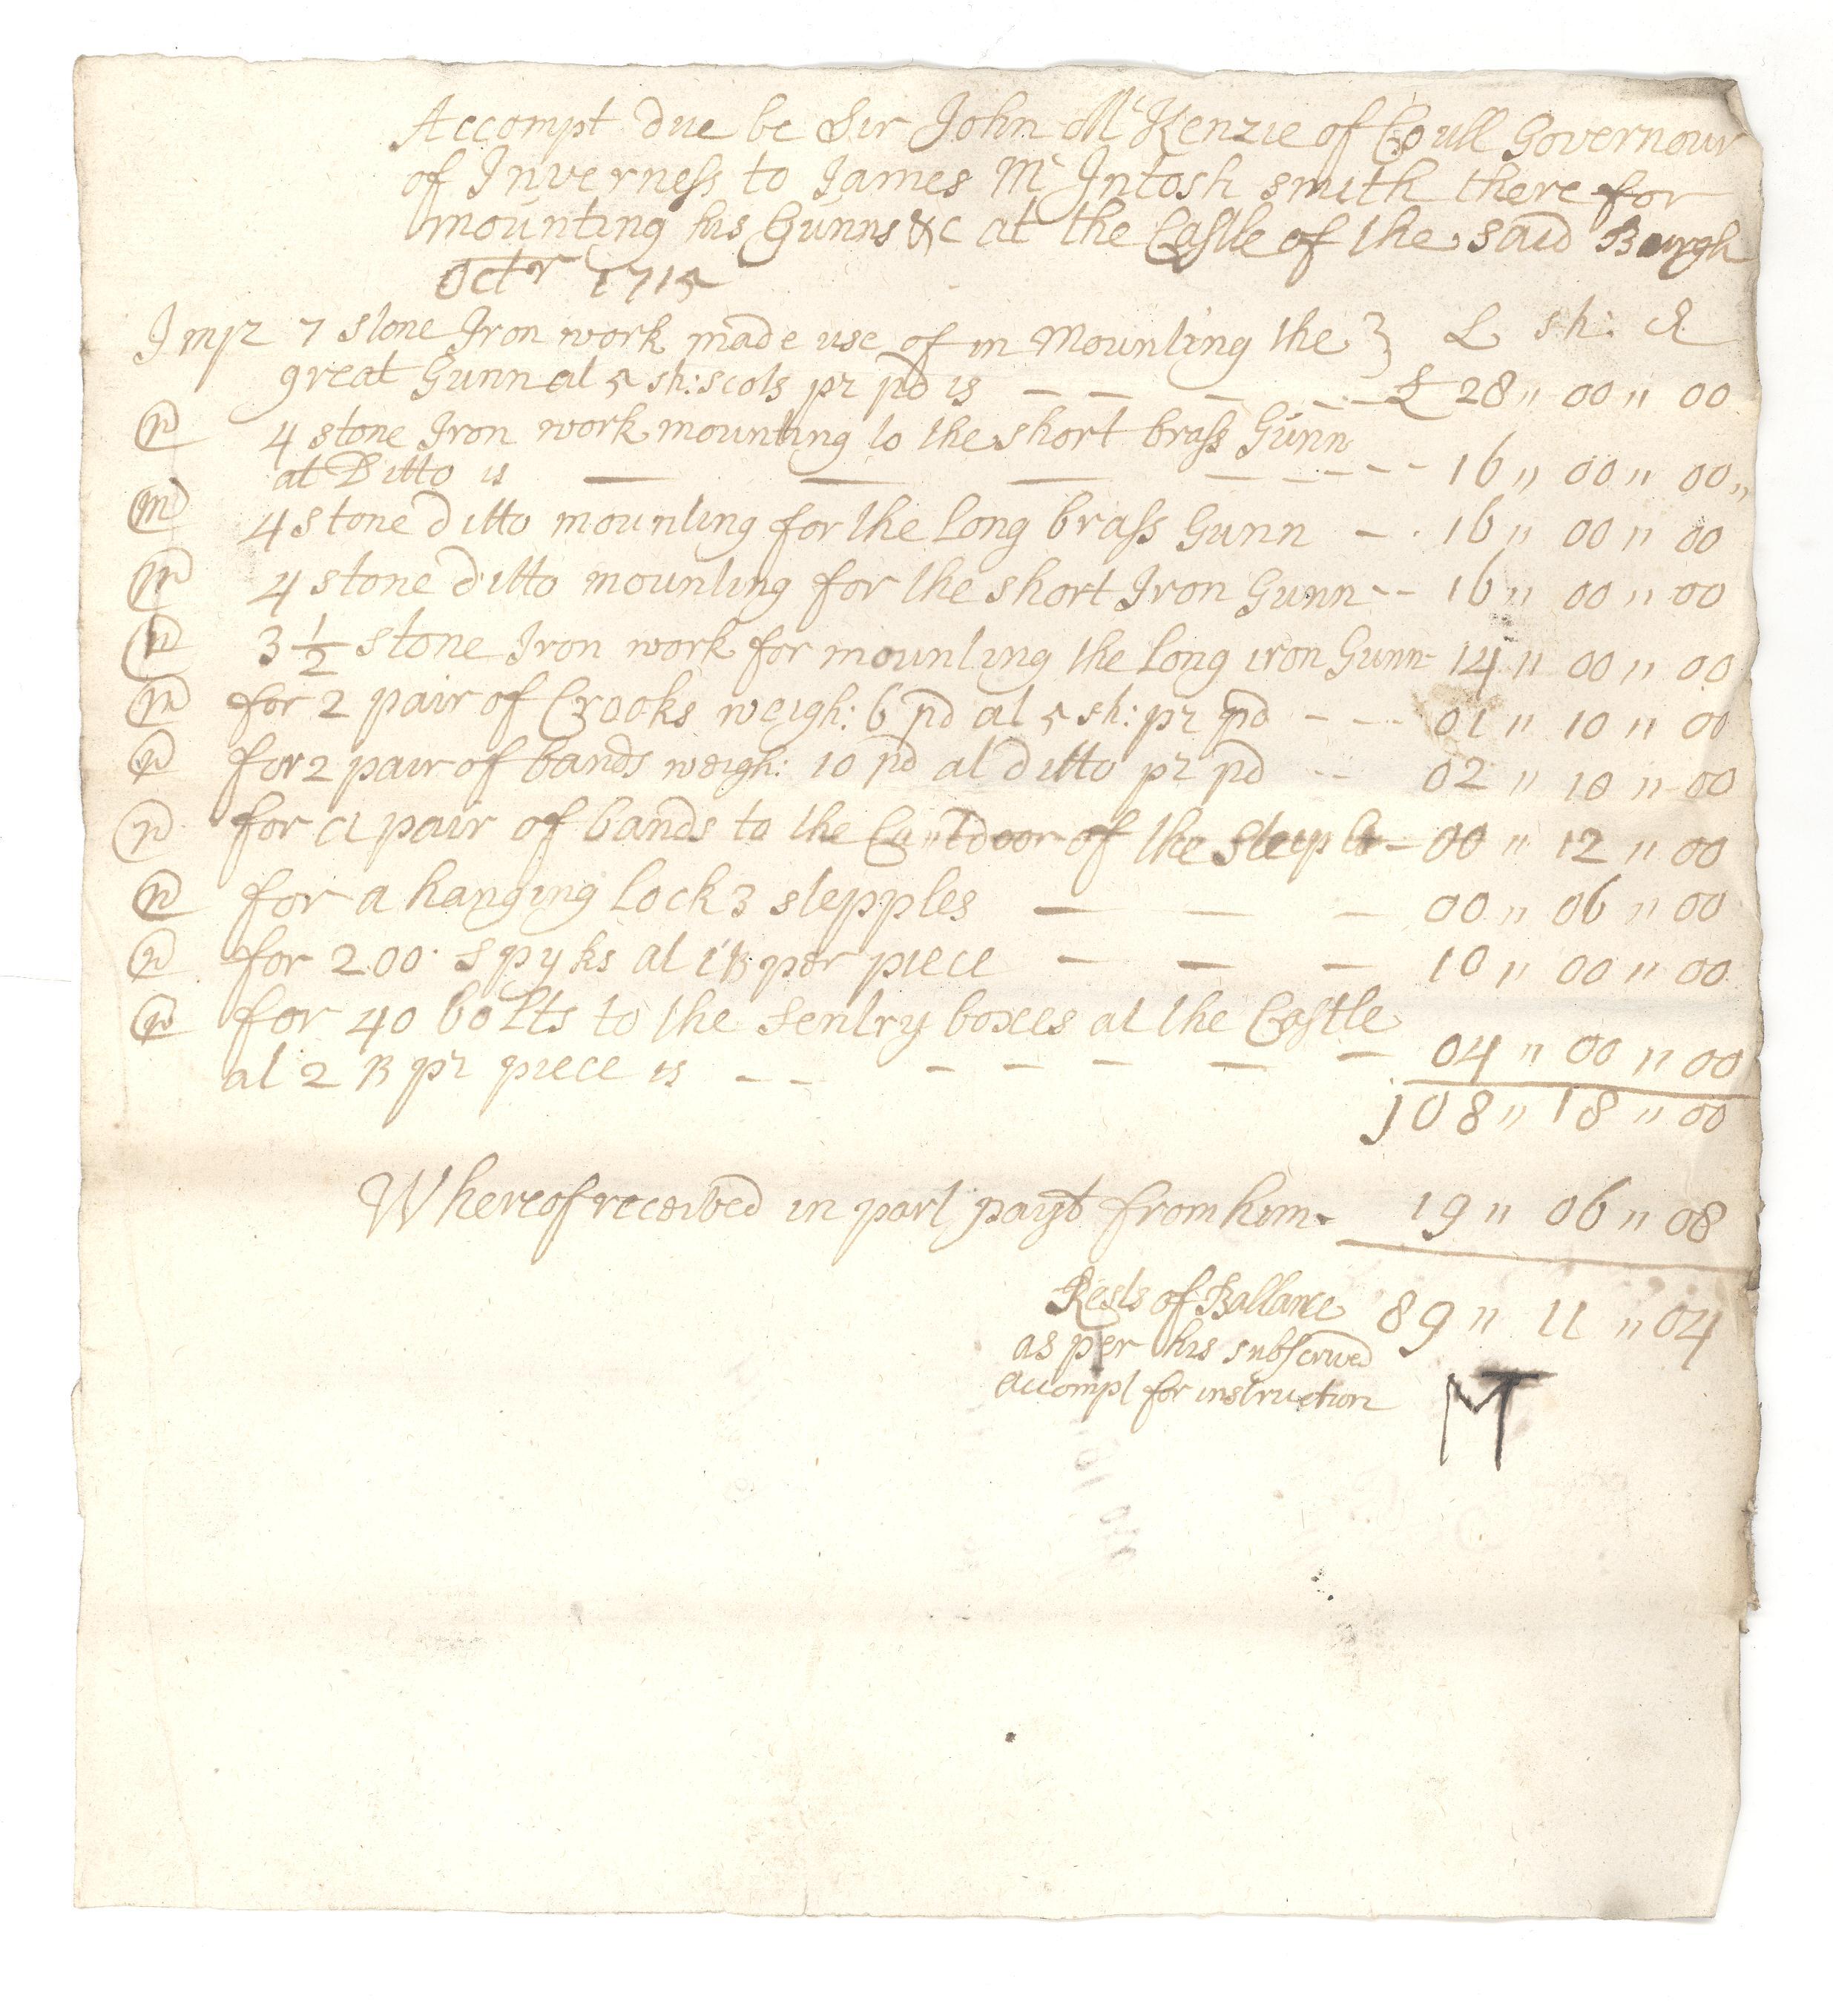 Accompt due be Sir John McKenzie of Coull Governour
of Inverness to James McIntosh smith there for
mounting his Gunns &c at the Castle of the said Burgh
Octr 1715
Impr 7 stone Iron work made use of in Mounting the } L sh: d
great Gunn at 5 sh: scots pr pd is — — — — £ 28 " 00 " 00
4 stone Iron work mounting to the short brass Gunn
at Ditto is — — — — — — 16 " 00 " 00 "
4 stone ditto mounting for the Long brass Gunn — 16 " 00 " 00
4 stone ditto mounting for the short Iron Gunn -- 16 " 00 " 00
3 1/2 stone Iron work for mounting the Long iron Gunn 14 " 00 " 00
for 2 pair of Crooks weigh: 6 pd at 5 sh: pr pd - - - 01 " 10 " 00
for 2 pair of bands weigh: 10 pd at ditto pr pd -- 02 " 10 " 00
for a pair of bands to the door of the Steeple - 00 " 12 " 00
for a hanging lock 3 stepples — — — 00 " 06 " 00
for 200 spyks at 1 ß per piece — — — 10 " 00 " 00
for 40 bolts to the sentry boxes at the Castle
at 2 ß pr piece is - - - - - — — 04 " 00 " 00
108 " 18 " 00
Whereof received in part payt from him - 19 " 06 " 08
Rests of Ballance 89 " 11 " 04
as per his subscrived
accompt for instruction MT